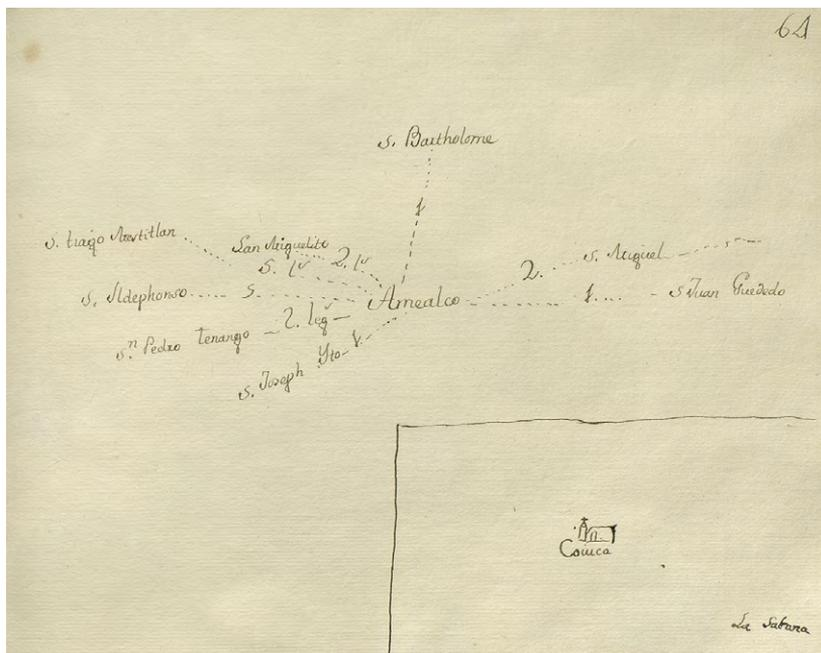 64
S. Bartholome
1
S. tiago Mextitlan
San Miguelito
5. l.s
2. l.s
2.
S. Miguel
S. Ildephonso
5.
Amealco
1
S Juan Guededo
S.n Pedro Tenango
2. leg.s
S. Joseph Yto
1
Coiuca
La Sabana